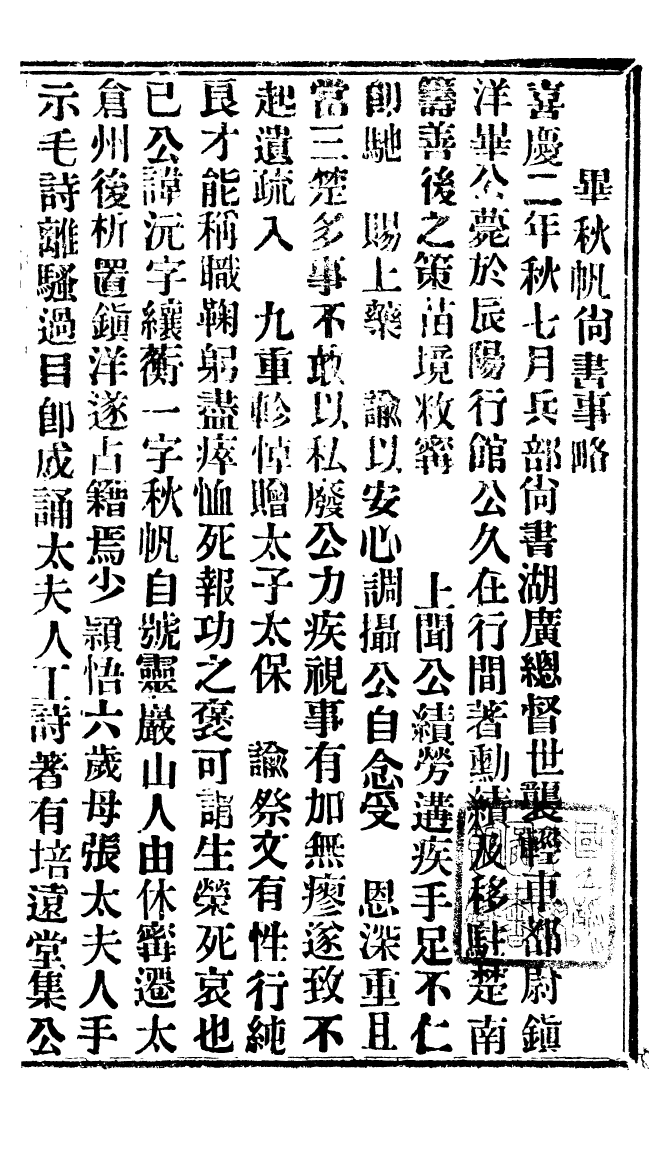 畢秋帆尚書事略
喜慶二年秋七月兵部尚書湖廣總督世襲輕車都尉鎮
洋畢公薨於辰陽行館公久在行間著勳績及移駐楚南
籌善後之策苗境敉甯　上聞公績勞遘疾手足不仁
卽馳　賜上藥　諭以安心調攝公自念受　恩深重且
當三楚多事不敢以私廢公力疾視事有加無瘳遂致不
起遺疏入　九重軫悼贈太子太保　諭祭文有性行純
良才能稱職鞠躬盡瘁恤死報功之褒可謂生榮死哀也
已公諱沅字纕蘅一字秋帆自號靈巖山人由休甯遷太
倉州後析置鎮洋遂占籍焉少穎悟六歲母張太夫人手
示毛詩離騷過目卽成誦太夫人工詩著有培遠堂集公